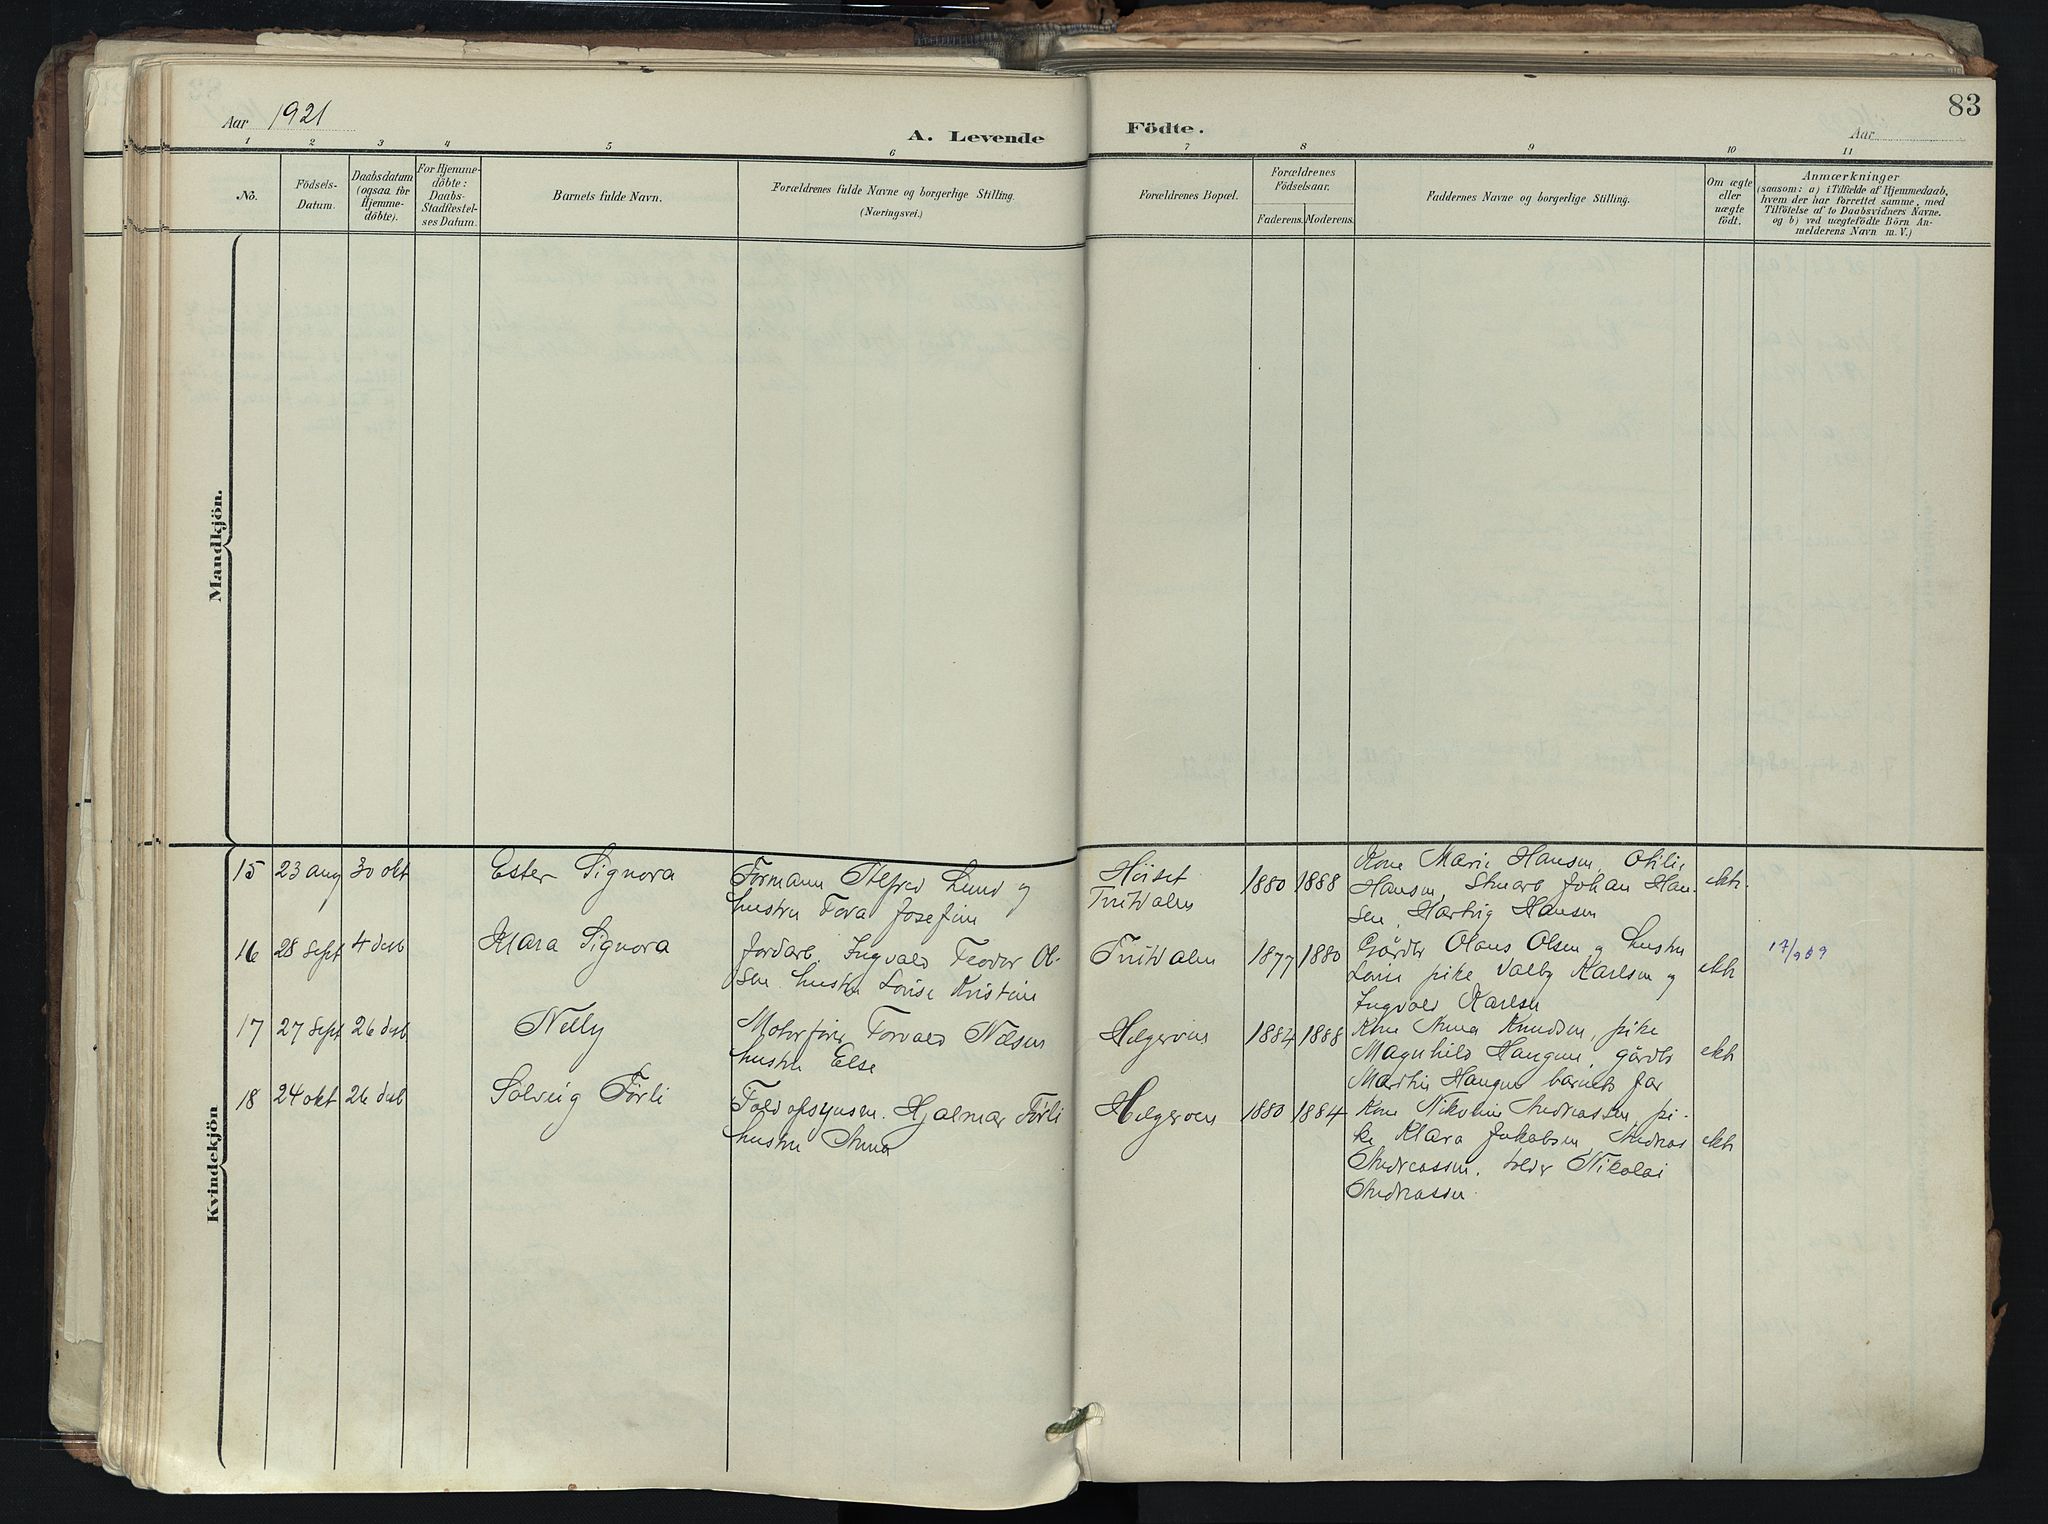 83
Aar 1921
A. Levende
Födte.
Aar
1 2 3 4 5 6 7 8 9 10 11
No.
Födsels-
Datum.
Daabsdatum
(ogsaa for
Hjemme-
döbte).
For Hjemme-
döbte:
Daabs-
Stadfæstel-
ses Datum.
Barnets fulde Navn.
Forældrenes fulde Navne og borgerlige Stilling.
(Næringsvei.)
Forældrenes Bopæl.
Forældrenes
Födselsaar.
Faderens. Moderens.
Faddernes Navne og borgerlige Stilling.
Om ægte
eller
uægte
födt.
Anmærkninger
(saasom: a) i Tilfælde af Hjemmedaab,
hvem der har forrettet samme, med
Tilföielse af to Daabsvidners Navne.
og b) ved uægtefödte Börn An-
melderens Navn m. V.)
Mandkjön.
Kvindekjön
15 23 aug 30 okt
Ester Signora
Formann Alfred Lund og
hustru Tora Josefine
Höiset
1880 1888
Kone Marie Hansen, Otilie
Hansen, Johan Han-
sen, Hartvig Hansen
ekte
16 28 sept 4 desb
Klara Signora
Jordarb. Ingvald Teodor Ol-
sen hustru Lovise Kristine
1877 1880
Gårdbr Olaus Olsen og hustru
Lovise pike Valby Karlsen og
Ingvald Karlsen
ekte
17/9 09
17 27 sept 26 desb
Nelly
Motorfører Torvald Nilsen
hustru Else
Helgerøen
1884 1888
Kone Anna Knudsen, pike
Magnhild Haugene, gårdb
Marthin Haugen barnets far
ekte
18 24 okt 26 desb
Solveig Tørli
Toldopsynsm. Hjalmar Tørli
hustru Anna
Helgeroen
1880 1884
Kone Nikoline Andreassen, pi-
ke Klara Jakobsen, Andreas
Andreassen, tolder Nikolai
Andreassen
ekte